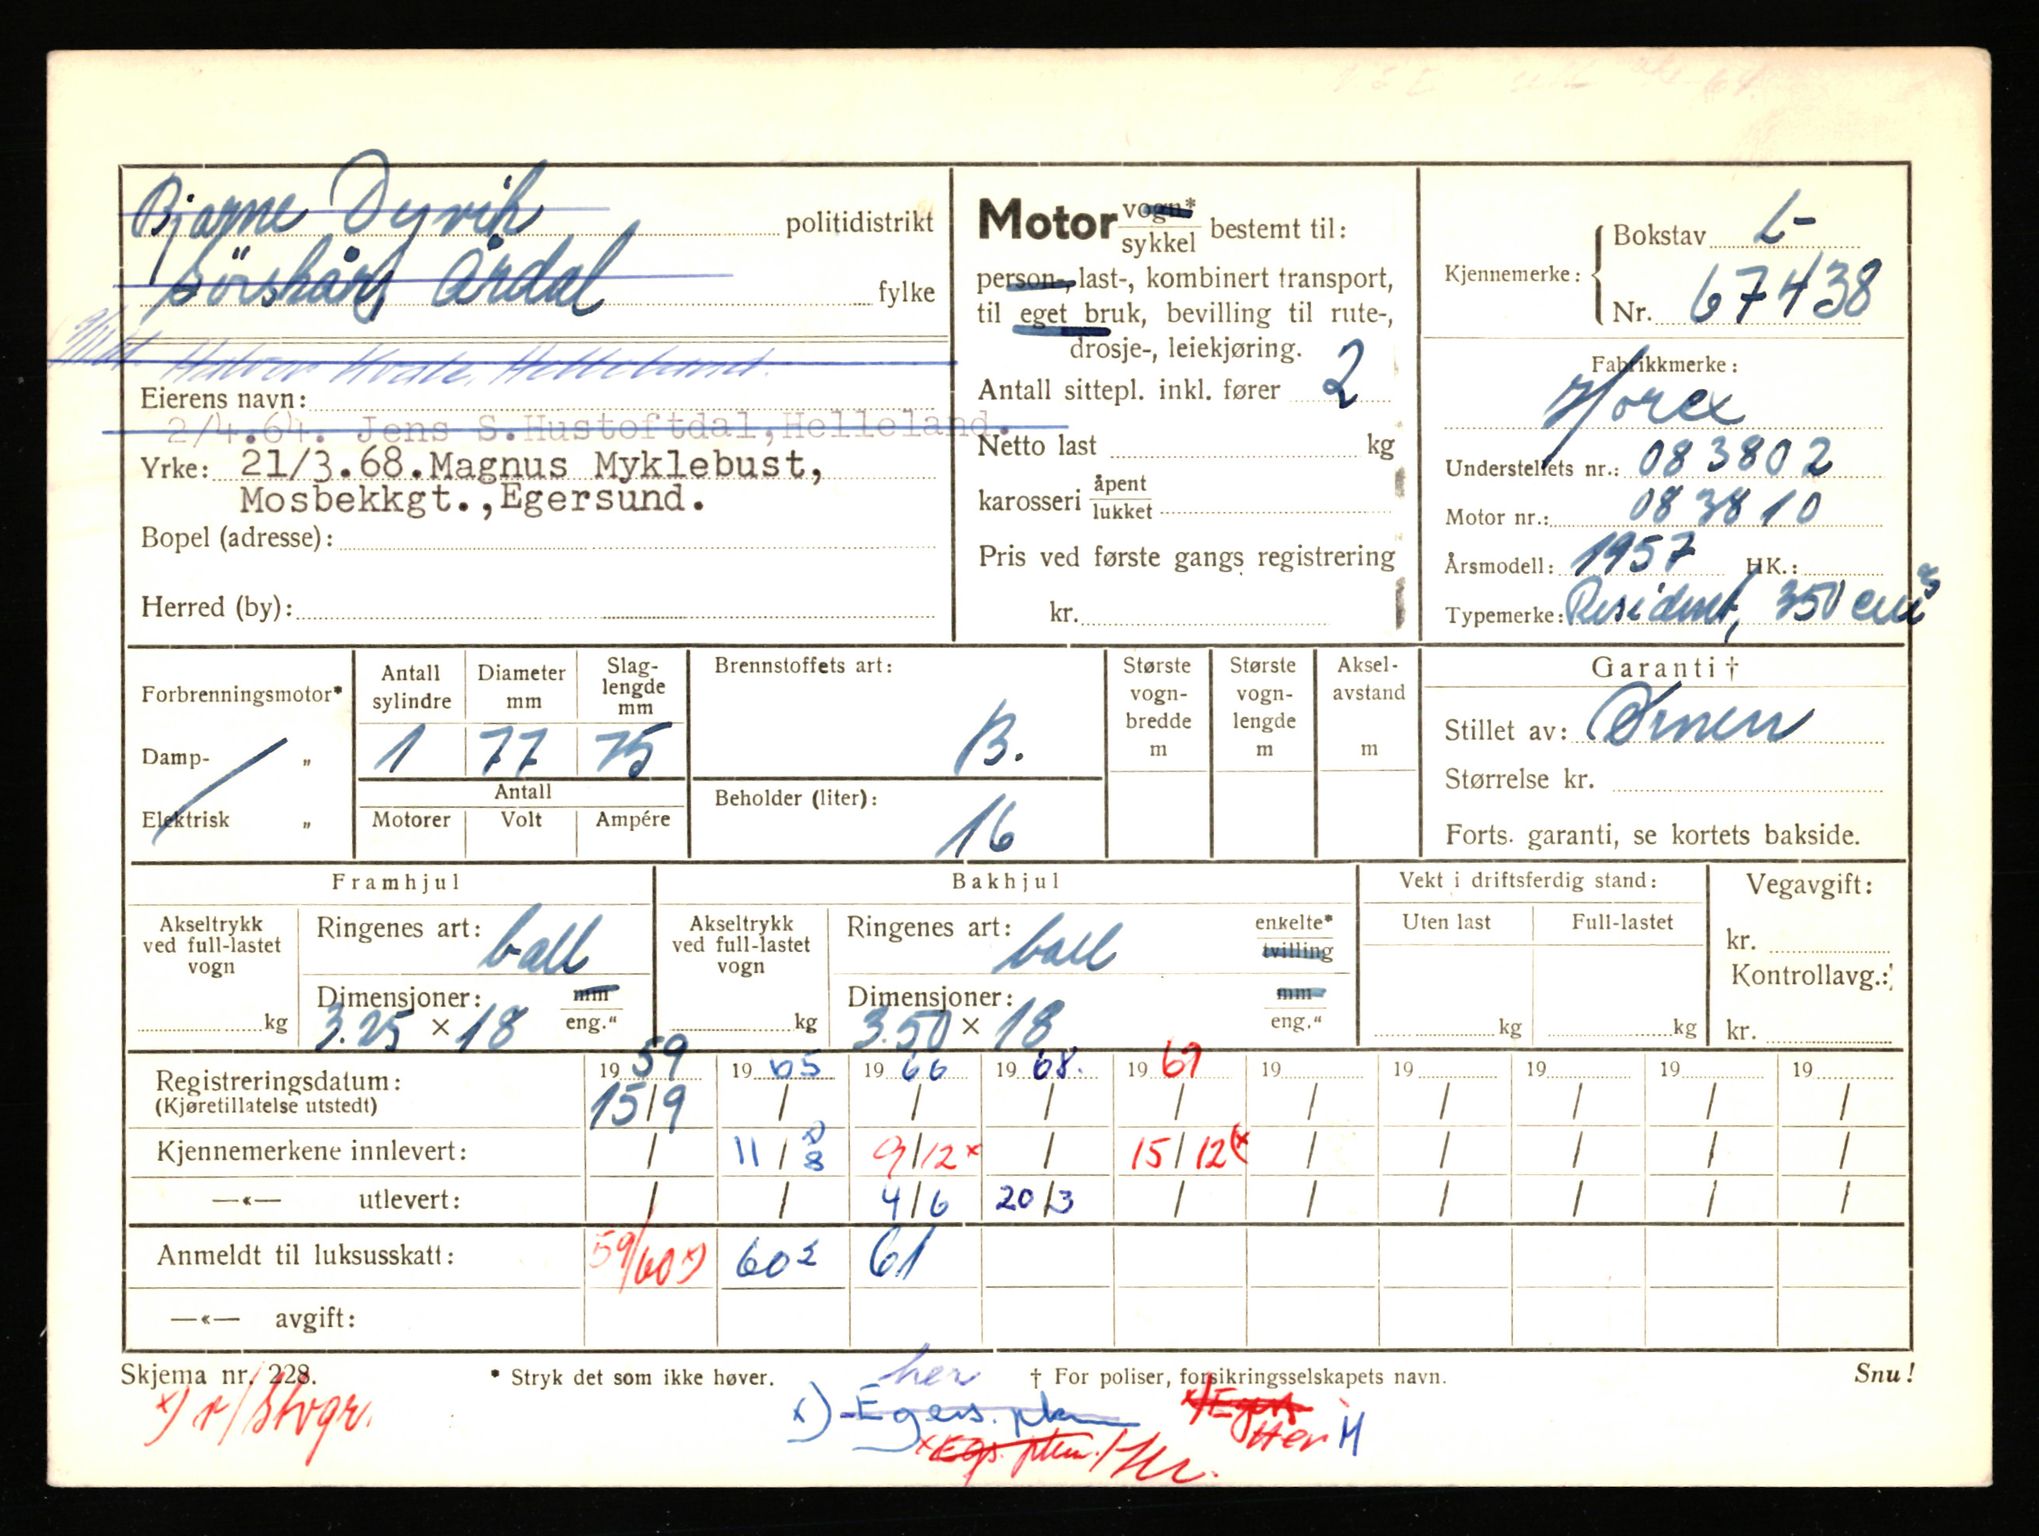 Bjarne Dyrvik politidistrikt
Årdal fylke
Halvor Hellebund.
Eierens navn:
2/4.64. Jens S.Hustoftdal,Helleland.
Yrke: 21/3.68.Magnus Myklebust,
Mosbekkgt.,Egersund.
Bopel (adresse):
Herred (by):
Motor vogn* sykkel bestemt til:
person-, last-, kombinert transport,
til eget bruk, bevilling til rute-,
drosje-, leiekjøring.
Antall sittepl. inkl. fører 2
Netto last kg
karosseri åpent lukket
Pris ved første gangs registrering
kr.
Kjennemerke: { Bokstav L-
Nr. 67438
Fabrikkmerke:
Horex
Understellets nr.: 083802
Motor nr.: 083810
Årsmodell: 1957 HK.:
Typemerke: Resident, 350 cm³
Forbrenningsmotor*
Damp- „
Elektrisk „
Antall sylindre Diameter mm Slag-lengde mm
1 77 75
Antall
Motorer Volt Ampére
Brennstoffets art:
B.
Beholder (liter):
16
Største vogn-bredde m
Største vogn-lengde m
Aksel-avstand m
Garanti †
Stillet av: Ørnen
Størrelse kr.
Forts. garanti, se kortets bakside.
Framhjul
Akseltrykk ved full-lastet vogn
kg
Ringenes art: ball
Dimensjoner: mm
3.25 × 18 eng."
Bakhjul
Akseltrykk ved full-lastet vogn
kg
Ringenes art: ball enkelte* tvilling
Dimensjoner: mm
3.50 × 18 eng."
Vekt i driftsferdig stand:
Uten last Full-lastet
kg kg
Vegavgift:
kr.
Kontrollavg.:
kr.
Registreringsdatum: 19 59 19 65 19 66 19 68. 19 69 19 19 19 19 19
(Kjøretillatelse utstedt) 15/9 / / / / / / / / /
Kjennemerkene innlevert: / 11/8 x) 9/12 x / 15/12 (x / / / / /
—«— utlevert: / / 4/6 20/3 / / / / / /
Anmeldt til luksusskatt: 59/60 x) 60 61
—«— avgift:
Skjema nr. 228. * Stryk det som ikke høver. her † For poliser, forsikringsselskapets navn. Snu!
x) Egers. x) Egers
Her M